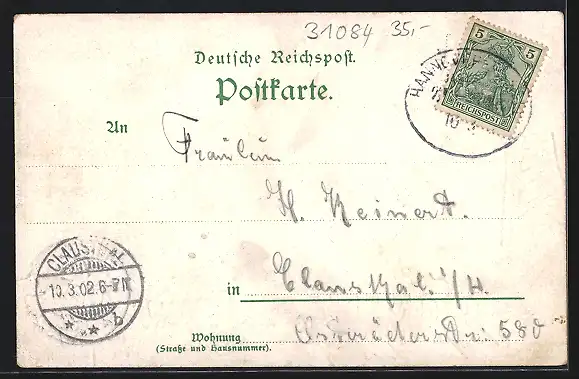 31084 35,-
Deutsche Reichspost.
Postkarte.
5 5
REICHSPOST
HANNOVER
10 3
An
Fräulein
H. Reinert.
CLAUSTHAL
10.3.02.6-7N.
* * b
in Clausthal. i/H.
Wohnung Osteröderstr: 580
(Straße und Hausnummer).